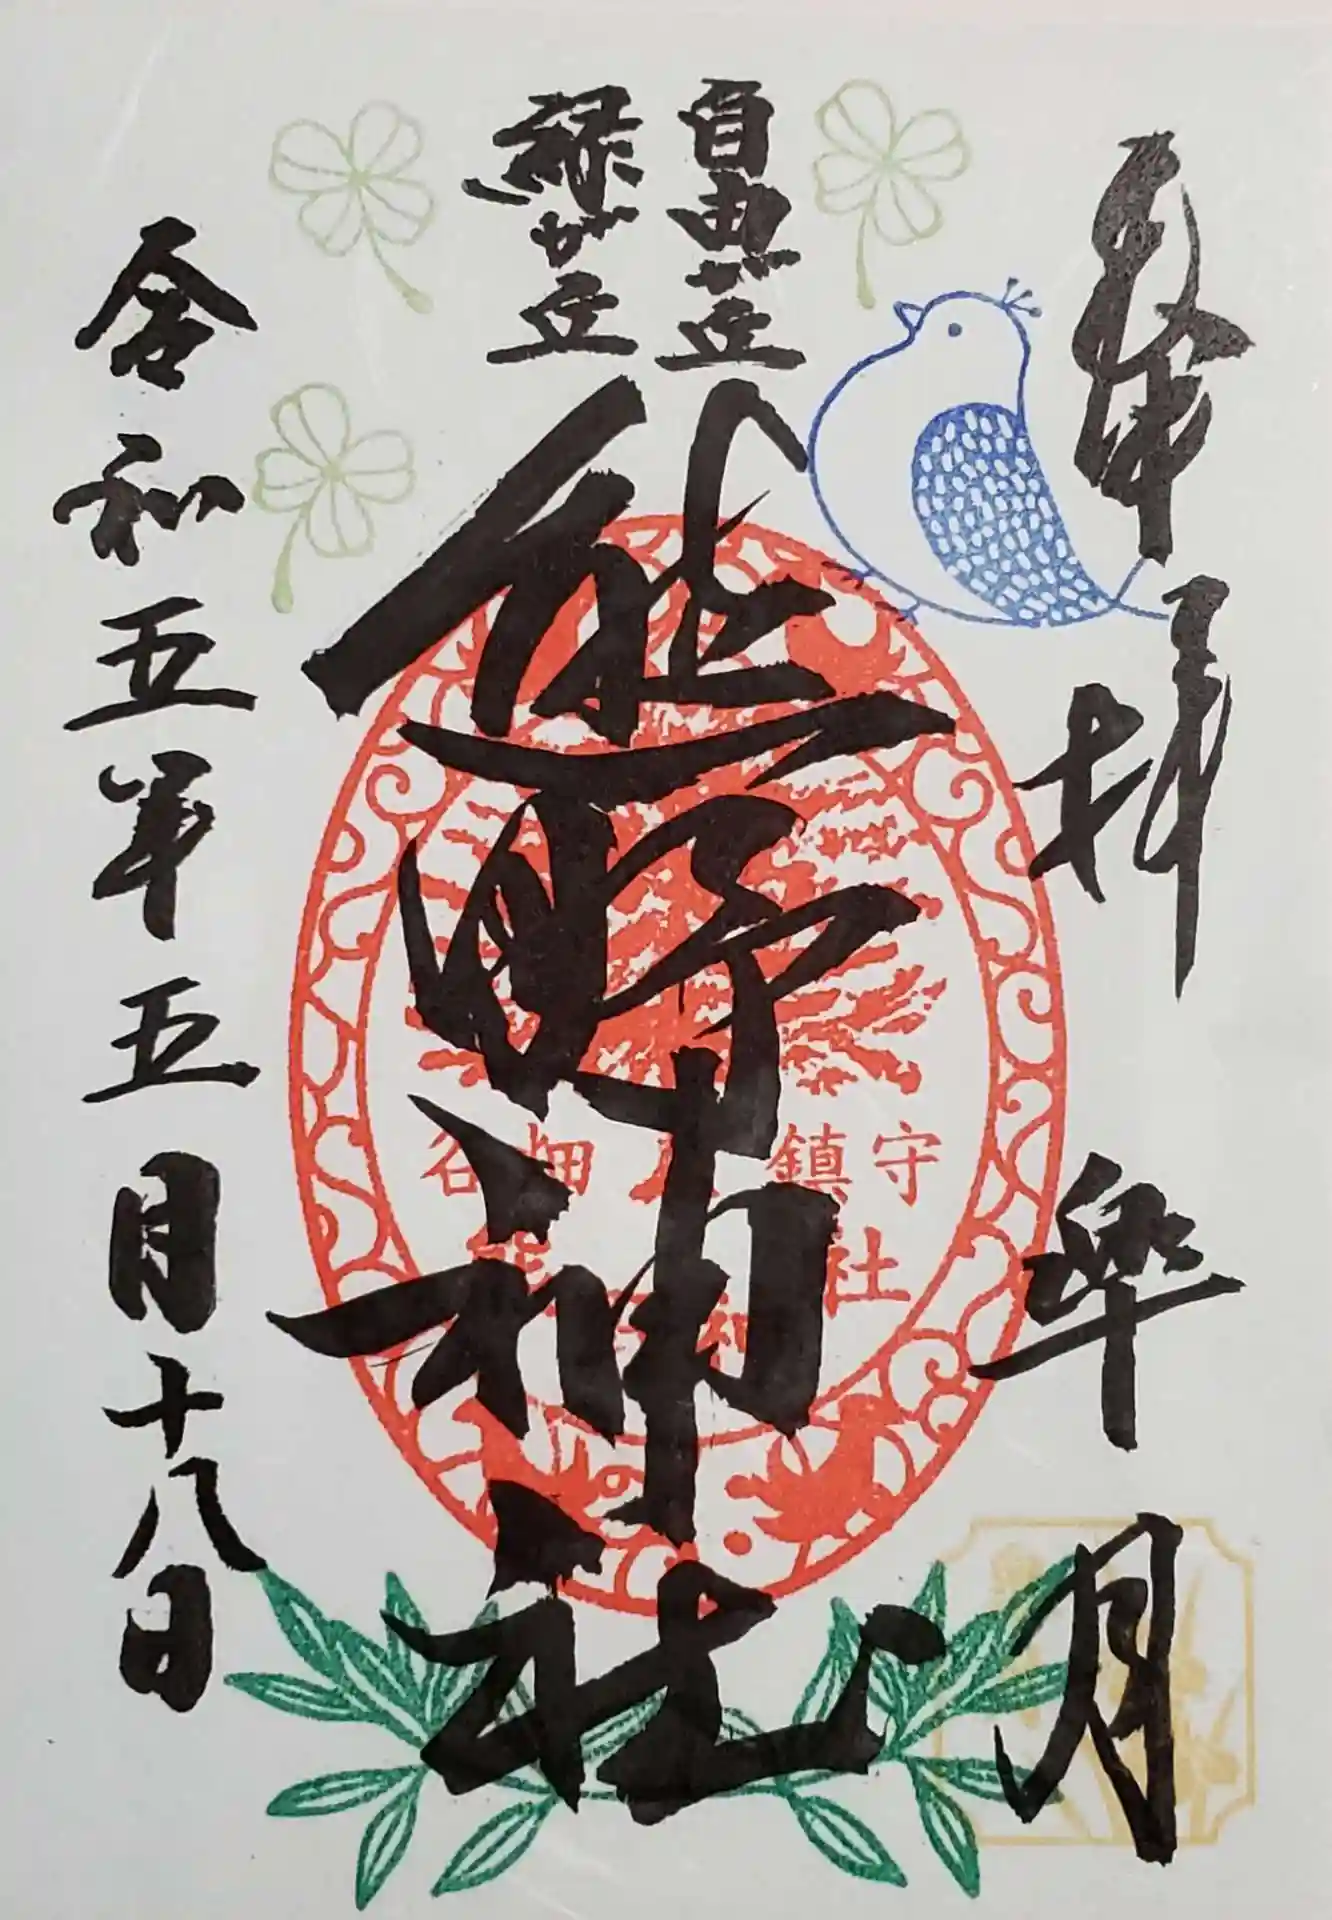 奉拝
皐月
自由が丘
緑が丘
熊野神社
谷畑
鎮守
社
令和五年五月十八日